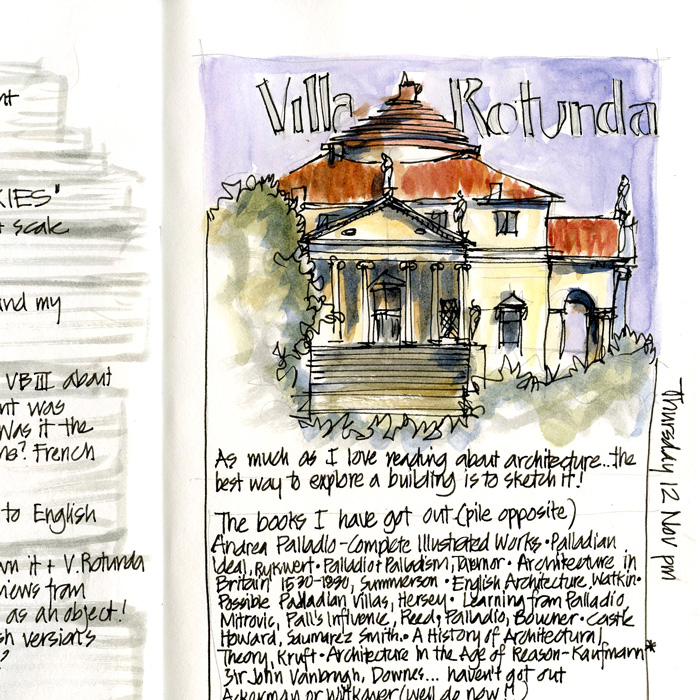 nt
KIES'
+ scale
and my
VB III about
nt was
Was it the
ns? French
to English
wn it + V.Rotunda
views from
as an object!
sh version's
?
Villa Rotunda
As much as I love reading about architecture...the
best way to explore a building is to sketch it!
The books I have got out-(pile opposite)
Andrea Palladio-Complete Illustrated Works • Palladian
Ideal, Rykwert • Palladio + Palladism, Tavernor • Architecture in
Britain 1530-1830, Summerson • English Architecture, Watkin •
Possible Palladian Villas, Hersey • Learning from Palladio,
Mitrovic, Pall's Influence, Reed, Palladio, Boucher • Castle
Howard, Saumarez Smith. • A History of Architectural
Theory, Kruft • Architecture in the Age of Reason-Kaufmann*
Sir John Vanbrugh, Downes... haven't got out
Ackerman or Wittkower (well do now!!)
Thursday 12 Nov pm